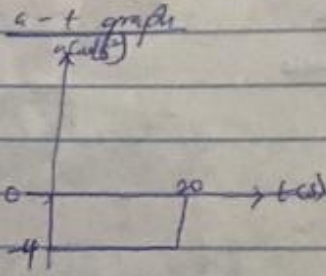 a - t graph
a(m/s²)
0 20 t(s)
-4